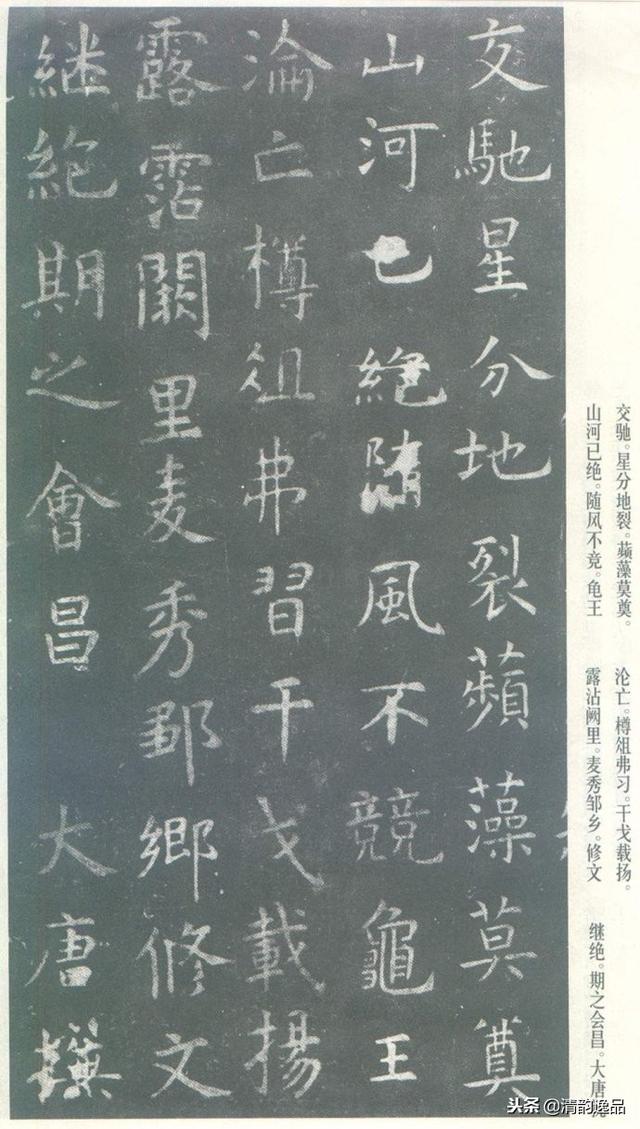 交馳星分地裂蘋藻莫奠
山河已絕隨風不競龜王
淪亡樽俎弗習干戈載揚
露霑闕里麦秀鄒鄉修文
継絕期之會昌 大唐撰
交驰。星分地裂。蘋藻莫奠。
山河已绝。随风不竞。龟王
沦亡。樽俎弗习。干戈载扬。
露沾阙里。麦秀邹乡。修文
继绝。期之会昌。大唐
头条 @清韵逸品